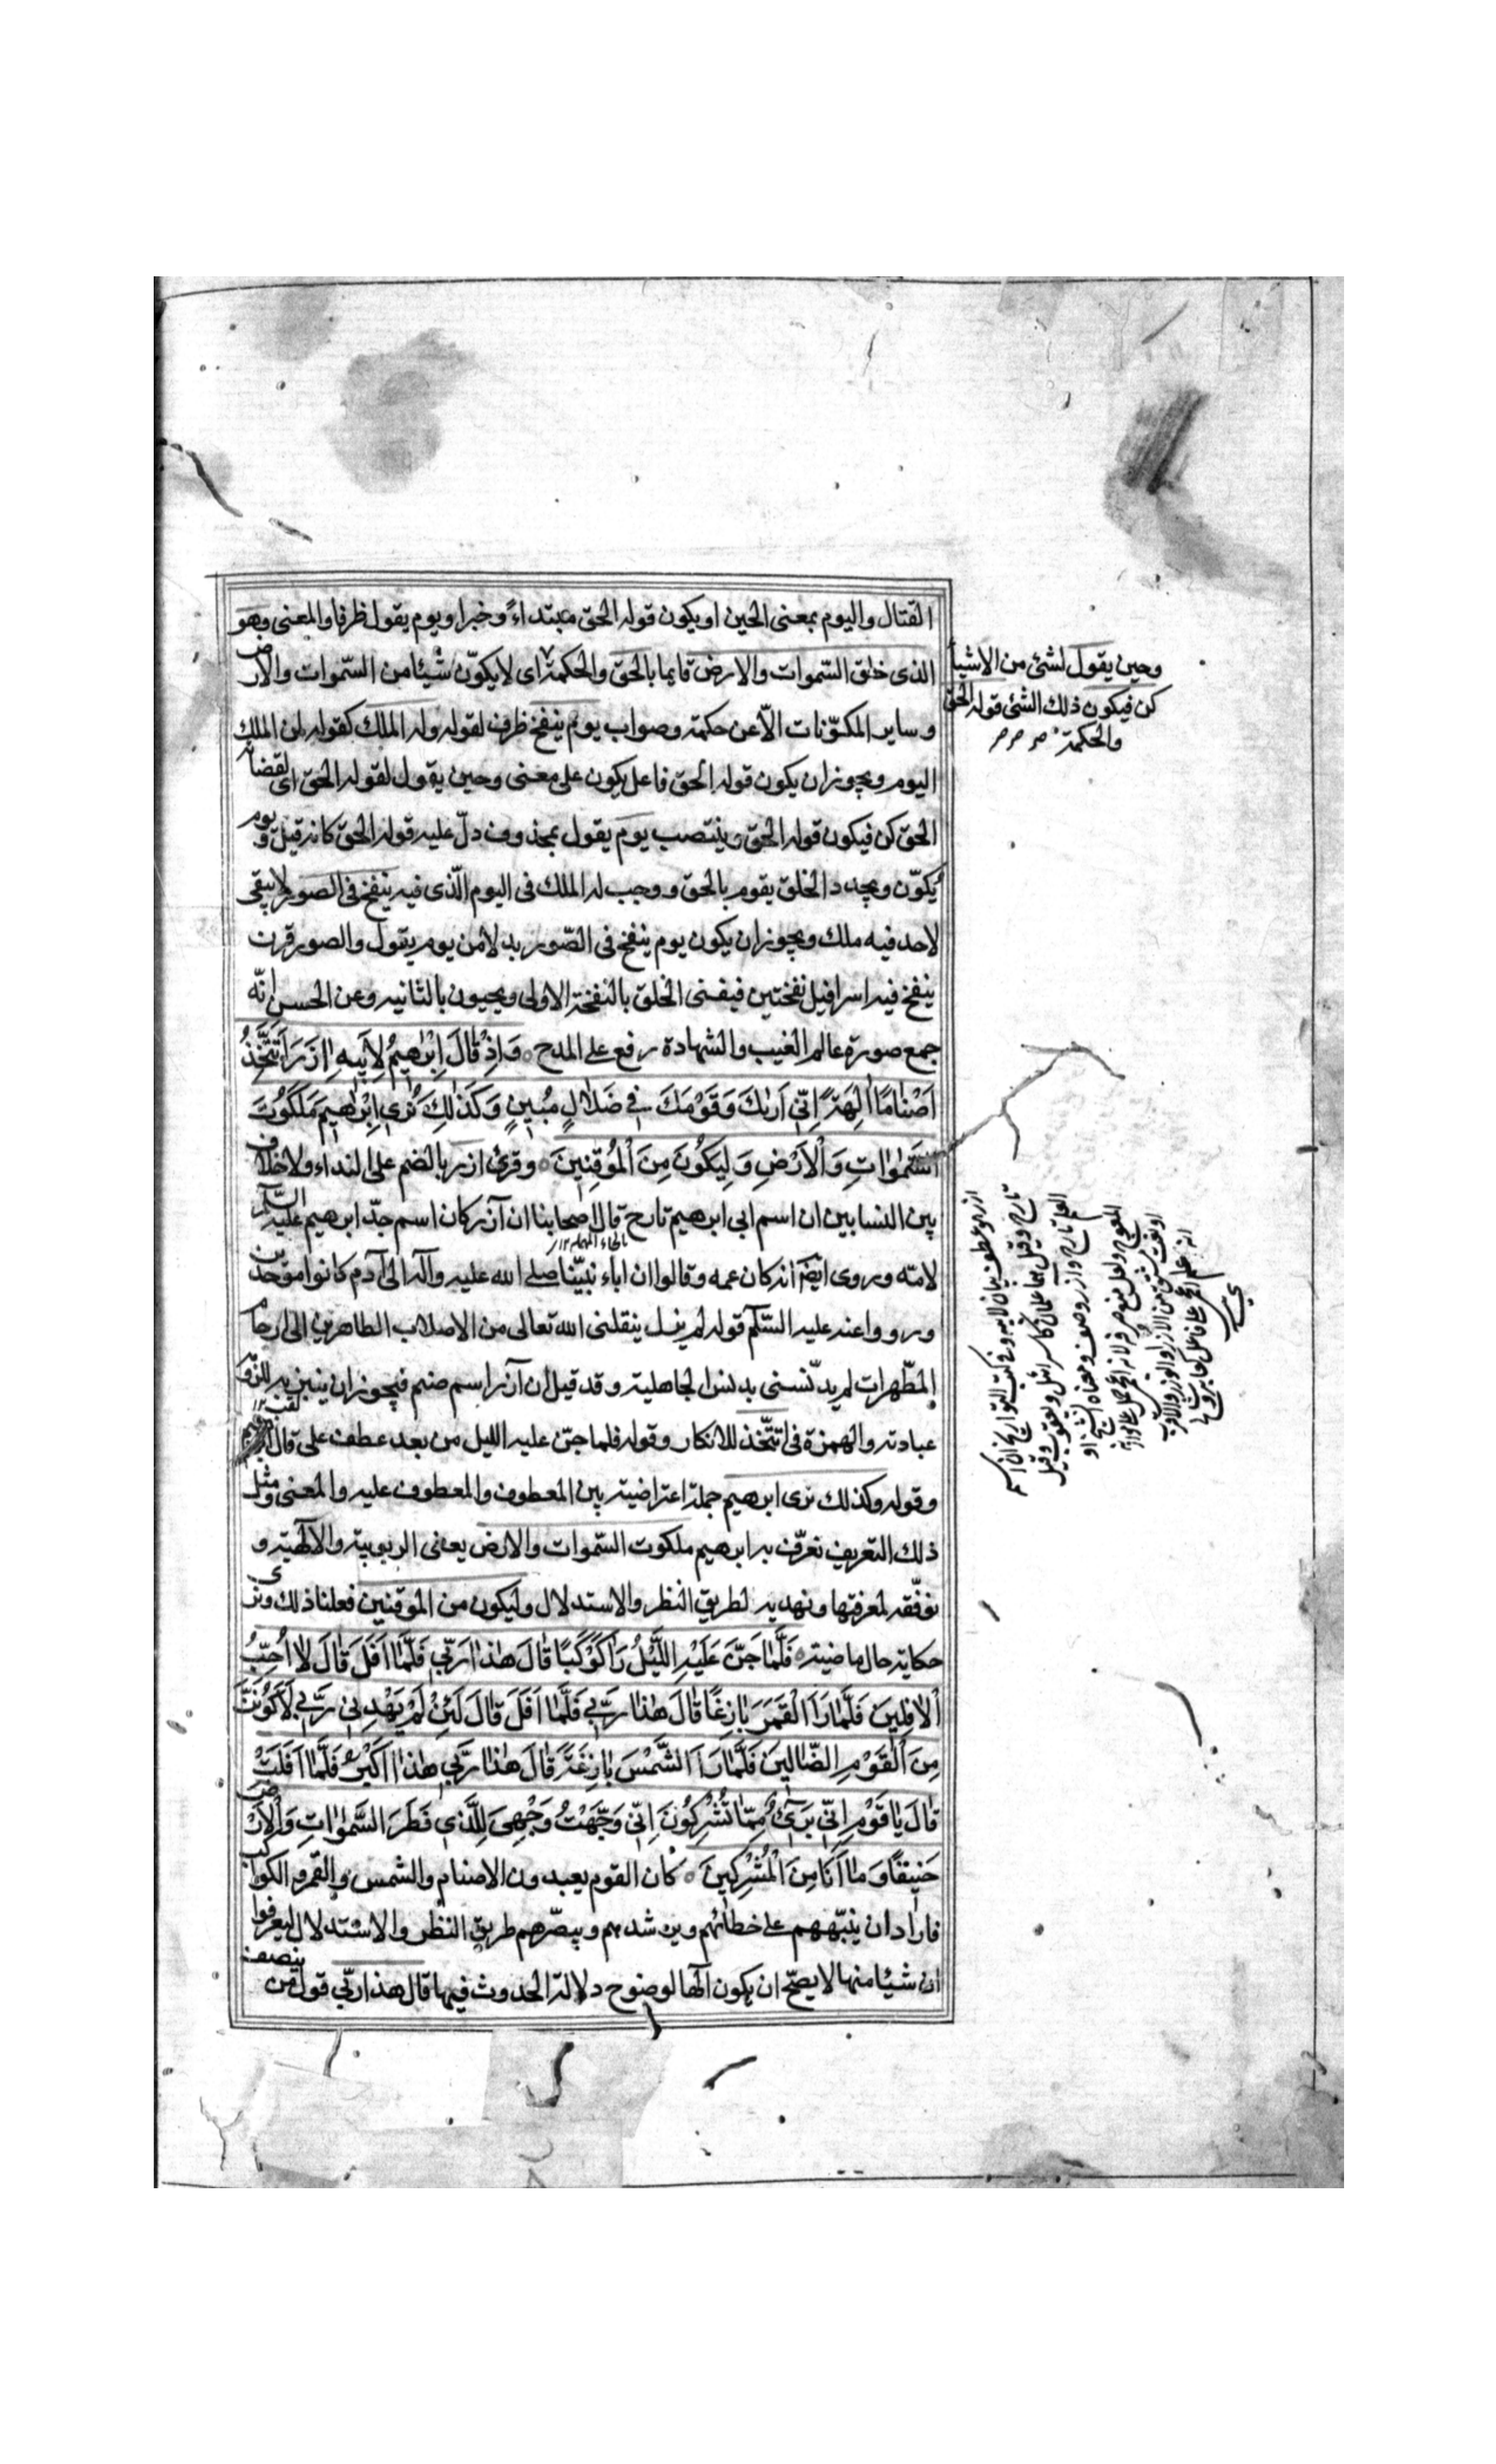 القتال واليوم بمعنى الحين او يكون قوله الحق مبتداءً وخبرا ويوم يقول ظرفا والمعنى وهو
الذى خلق السّموات والارض قايما بالحق والحكمة اى لا يكوّن شيئا من السّموات والارض
وساير المكوّنات الّا عن حكمة وصواب يوم ينفخ ظرف لقوله وله الملك كقوله لمن الملك
اليوم ويجوز ان يكون قوله الحق فاعل يكون على معنى وحين يقول لقوله الحق اى لقضائه
الحق كن فيكون قوله الحق وينتصب يوم يقول بمحذوف دلّ عليه قوله الحق كانه قيل ويوم
يكوّن ويجدد الخلق يقوم بالحق ووجب له الملك فى اليوم الّذى فيه ينفخ فى الصور لا يبقى
لاحد فيه ملك ويجوز ان يكون يوم ينفخ فى الصّور بدلا من يوم يقول والصور قرن
ينفخ فيه اسرافيل نفختين فيفنى الخلق بالنفخة الاولى ويحيون بالثانيه وعن الحسن انّه
جمع صورة عالم الغيب والشهادة رفع على المدح ۰ وَاِذْ قٰالَ اِبْرٰهيمُ لِاَبيهِ اٰزَرَ اَتَتَّخِذُ
اَصْنٰامًا اٰلِهَةً اِنّى اَرٰيكَ وَقَوْمَكَ فى ضَلٰالٍ مُبينٍ وَكَذٰلِكَ نُرى اِبْرٰهيمَ مَلَكُوتَ
السَّمٰوٰاتِ وَالْاَرْضِ وَلِيَكُونَ مِنَ الْمُوقِنينَ ۰ وقرئ ازر بالضم على النداء ولا خلاف
بين النسابين ان اسم ابى ابرهيم تارح قال اصحابنا ان آزر كان اسم جدّ ابرهيم عليه السّلم
بالحاء المهملة ١٢
لامّه وروى ايضا انه كان عمه وقالوا ان اباء نبيّنا صلى الله عليه وآله الى آدم كانوا موحدين
ورووا عنه عليه السّلم قوله لم يزل ينقلنى الله تعالى من الاصلاب الطاهرين الى ارحام
المطّهرات لم يدنّسنى بدنس الجاهلية وقد قيل ان آزر اسم صنم فيجوز ان ينبز به للزومه
عبادته والهمزة فى اتتّخذ للانكار وقوله فلما جنّ عليه الليل من بعد عطف على قال
لقب ١٢
وقوله وكذلك نرى ابرهيم جملة اعتراضية بين المعطوف والمعطوف عليه والمعنى ومثل
ذلك التعريف نعرّف به ابرهيم ملكوت السّموات والارض يعنى الربوبية والالٰهية و
نوفّقه لمعرفتها ونهديه لطريق النظر والاستدلال وليكون من الموقنين فعلنا ذلك ونرى
حكاية حال ماضية ۰ فَلَمّٰا جَنَّ عَلَيْهِ اللَّيْلُ رَاٰ كَوْكَبًا قٰالَ هٰذٰا رَبّى فَلَمّٰا اَفَلَ قٰالَ لٰا اُحِبُّ
الْاٰفِلينَ فَلَمّٰا رَاَ الْقَمَرَ بٰازِغًا قٰالَ هٰذٰا رَبّى فَلَمّٰا اَفَلَ قٰالَ لَئِنْ لَمْ يَهْدِنى رَبّى لَاَكُونَنَّ
مِنَ الْقَوْمِ الضّٰالّينَ فَلَمّٰا رَاَ الشَّمْسَ بٰازِغَةً قٰالَ هٰذٰا رَبّى هٰذٰا اَكْبَرُ فَلَمّٰا اَفَلَتْ
قٰالَ يٰا قَوْمِ اِنّى بَرىءٌ مِمّٰا تُشْرِكُونَ اِنّى وَجَّهْتُ وَجْهِىَ لِلَّذى فَطَرَ السَّمٰوٰاتِ وَالْاَرْضَ
حَنيفًا وَمٰا اَنَا مِنَ الْمُشْرِكينَ ۰ كان القوم يعبدون الاصنام والشمس والقمر والكواكب
فاراد ان ينبّههم على خطائهم ويرشدهم ويبصّرهم طريق النظر والاستدلال ليعرفوا
ان شيئا منها لا يصحّ ان يكون الٰها لوضوح دلالة الحدوث فيها قال هذا ربّى قول من ينصف
وحين يقول لشئ من الاشياء
كن فيكون ذلك الشئ قوله الحق
والحكمة
ازر هو عطف بيان لابيه وفى كتب التواريخ ان اسمه
تارح وقيل هما علمان له كاسرائيل ويعقوب وقيل
العلم تارح وآزر وصف ومعناه الشيخ او
المعوج ولعل منع صرفه لانه اعجمى